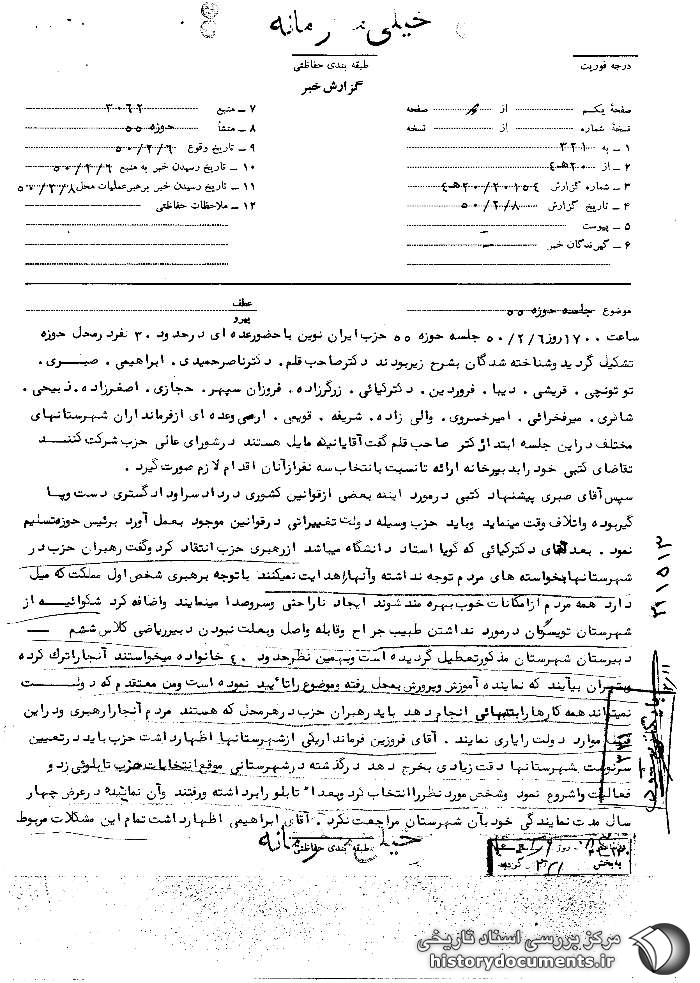 خیلی محرمانه
درجه فوریت
طبقه بندی حفاظتی
گزارش خبر
صفحهٔ یکم از صفحه
نسخهٔ شماره از نسخه
۱ ـ به ۳۲۱
۲ ـ از ۲۰هـ۴
۳ ـ شماره گزارش ۲۰/۲۰۱۵۴هـ۴
۴ ـ تاریخ گزارش ۵۰/۲/۸
۵ ـ پیوست ـ
۶ ـ گیرندگان خبر ـ
۷ ـ منبع ۳۰۶۲
۸ ـ منشأ حوزه ۵۵
۹ ـ تاریخ وقوع ۵۰/۲/۶
۱۰ ـ تاریخ رسیدن خبر به منبع ۵۰/۲/۶
۱۱ ـ تاریخ رسیدن خبر برهبر عملیات محل ۵۰/۲/۸
۱۲ ـ ملاحظات حفاظتی
موضوع جلسه حوزه ۵۵
عطف
پیرو
ساعت ۱۷۰۰ روز ۵۰/۲/۶ جلسه حوزه ۵۵ حزب ایران نوین با حضور عده ای در حدود ۳۰ نفر در محل حوزه
تشکیل گردید و شناخته شدگان بشرح زیر بودند دکتر صاحب قلم . دکتر ناصر حمیدی . ابراهیمی . صبری .
توتونچی . قریشی . دیبا . فروردین . دکتر کیائی . زرگرزاده . فروزان سپهر . حجازی . اصغرزاده . ذبیحی .
شاکری . میرفخرائی . امیرخسروی . والی زاده . شریفه . قویمی . ارضی و عده ای از فرمانداران شهرستانهای
مختلف در این جلسه ابتدا دکتر صاحب قلم گفت آقایانیکه مایل هستند در شورای عالی حزب شرکت کننــد
تقاضای کتبی خود را بدبیرخانه ارائه تا نسبت بانتخاب سه نفر از آنان اقدام لازم صورت گیرد .
سپس آقای صبری پیشنهاد کتبی در مورد اینکه بعضی از قوانین کشوری در دادسرا و دادگستری دست و پا
گیر بوده و اتلاف وقت مینماید و باید حزب وسیله دولت تغییراتی در قوانین موجود بعمل آورد برئیس حوزه تسلیم
نمود . بعد آقای دکتر کیائی که گویا استاد دانشگاه میباشد از رهبری حزب انتقاد کرد و گفت رهبران حزب در
شهرستانها بخواسته های مردم توجه نداشته و آنها را هدایت نمیکنند با توجه برهبری شخص اول مملکت که میل
دارد همه مردم از امکانات خوب بهره مند شوند ایجاد ناراحتی و سر و صدا مینمایند و اضافه کرد شکوائیه از
شهرستان تویسرکان در مورد نداشتن طبیب جراح و قابله واصل و بعلت نبودن دبیر ریاضی کلاس ششم
دبیرستان شهرستان مذکور تعطیل گردیده است و بهمین نظر حدود ۴۰ خانواده میخواستند آنجا را ترک کرده
و بتهران بیآیند که نماینده آموزش و پرورش بمحل رفته و موضوع را تأیید نموده است و من معتقدم که دولــت
نمیتواند همه کارها را بتنهائی انجام دهد باید رهبران حزب در هر محل که هستند مردم آنجا را رهبری و در این
قبیل موارد دولت را یاری نمایند . آقای فروزین فرماندار یکی از شهرستانها اظهار داشت حزب باید در تعیین
سرنوشت شهرستانها دقت زیادی بخرج دهد در گذشته در شهرستانی موقع انتخابات حزب تابلوئی زد و
فعالیت را شروع نمود و شخص مورد نظر را انتخاب کرد و بعداً تابلو را برداشته و رفتند و آن نماینده در عرض چهار
سال مدت نمایندگی خود بآن شهرستان مراجعت نکرد . آقای ابراهیمی اظهار داشت تمام این مشکلات مربوط
۳۲۱۵۱۳
خیلی محرمانه
طبقه بندی حفاظتی
روز
به بخش ۳۲۱ گردید
مرکز بررسی اسناد تاریخی
historydocuments.ir